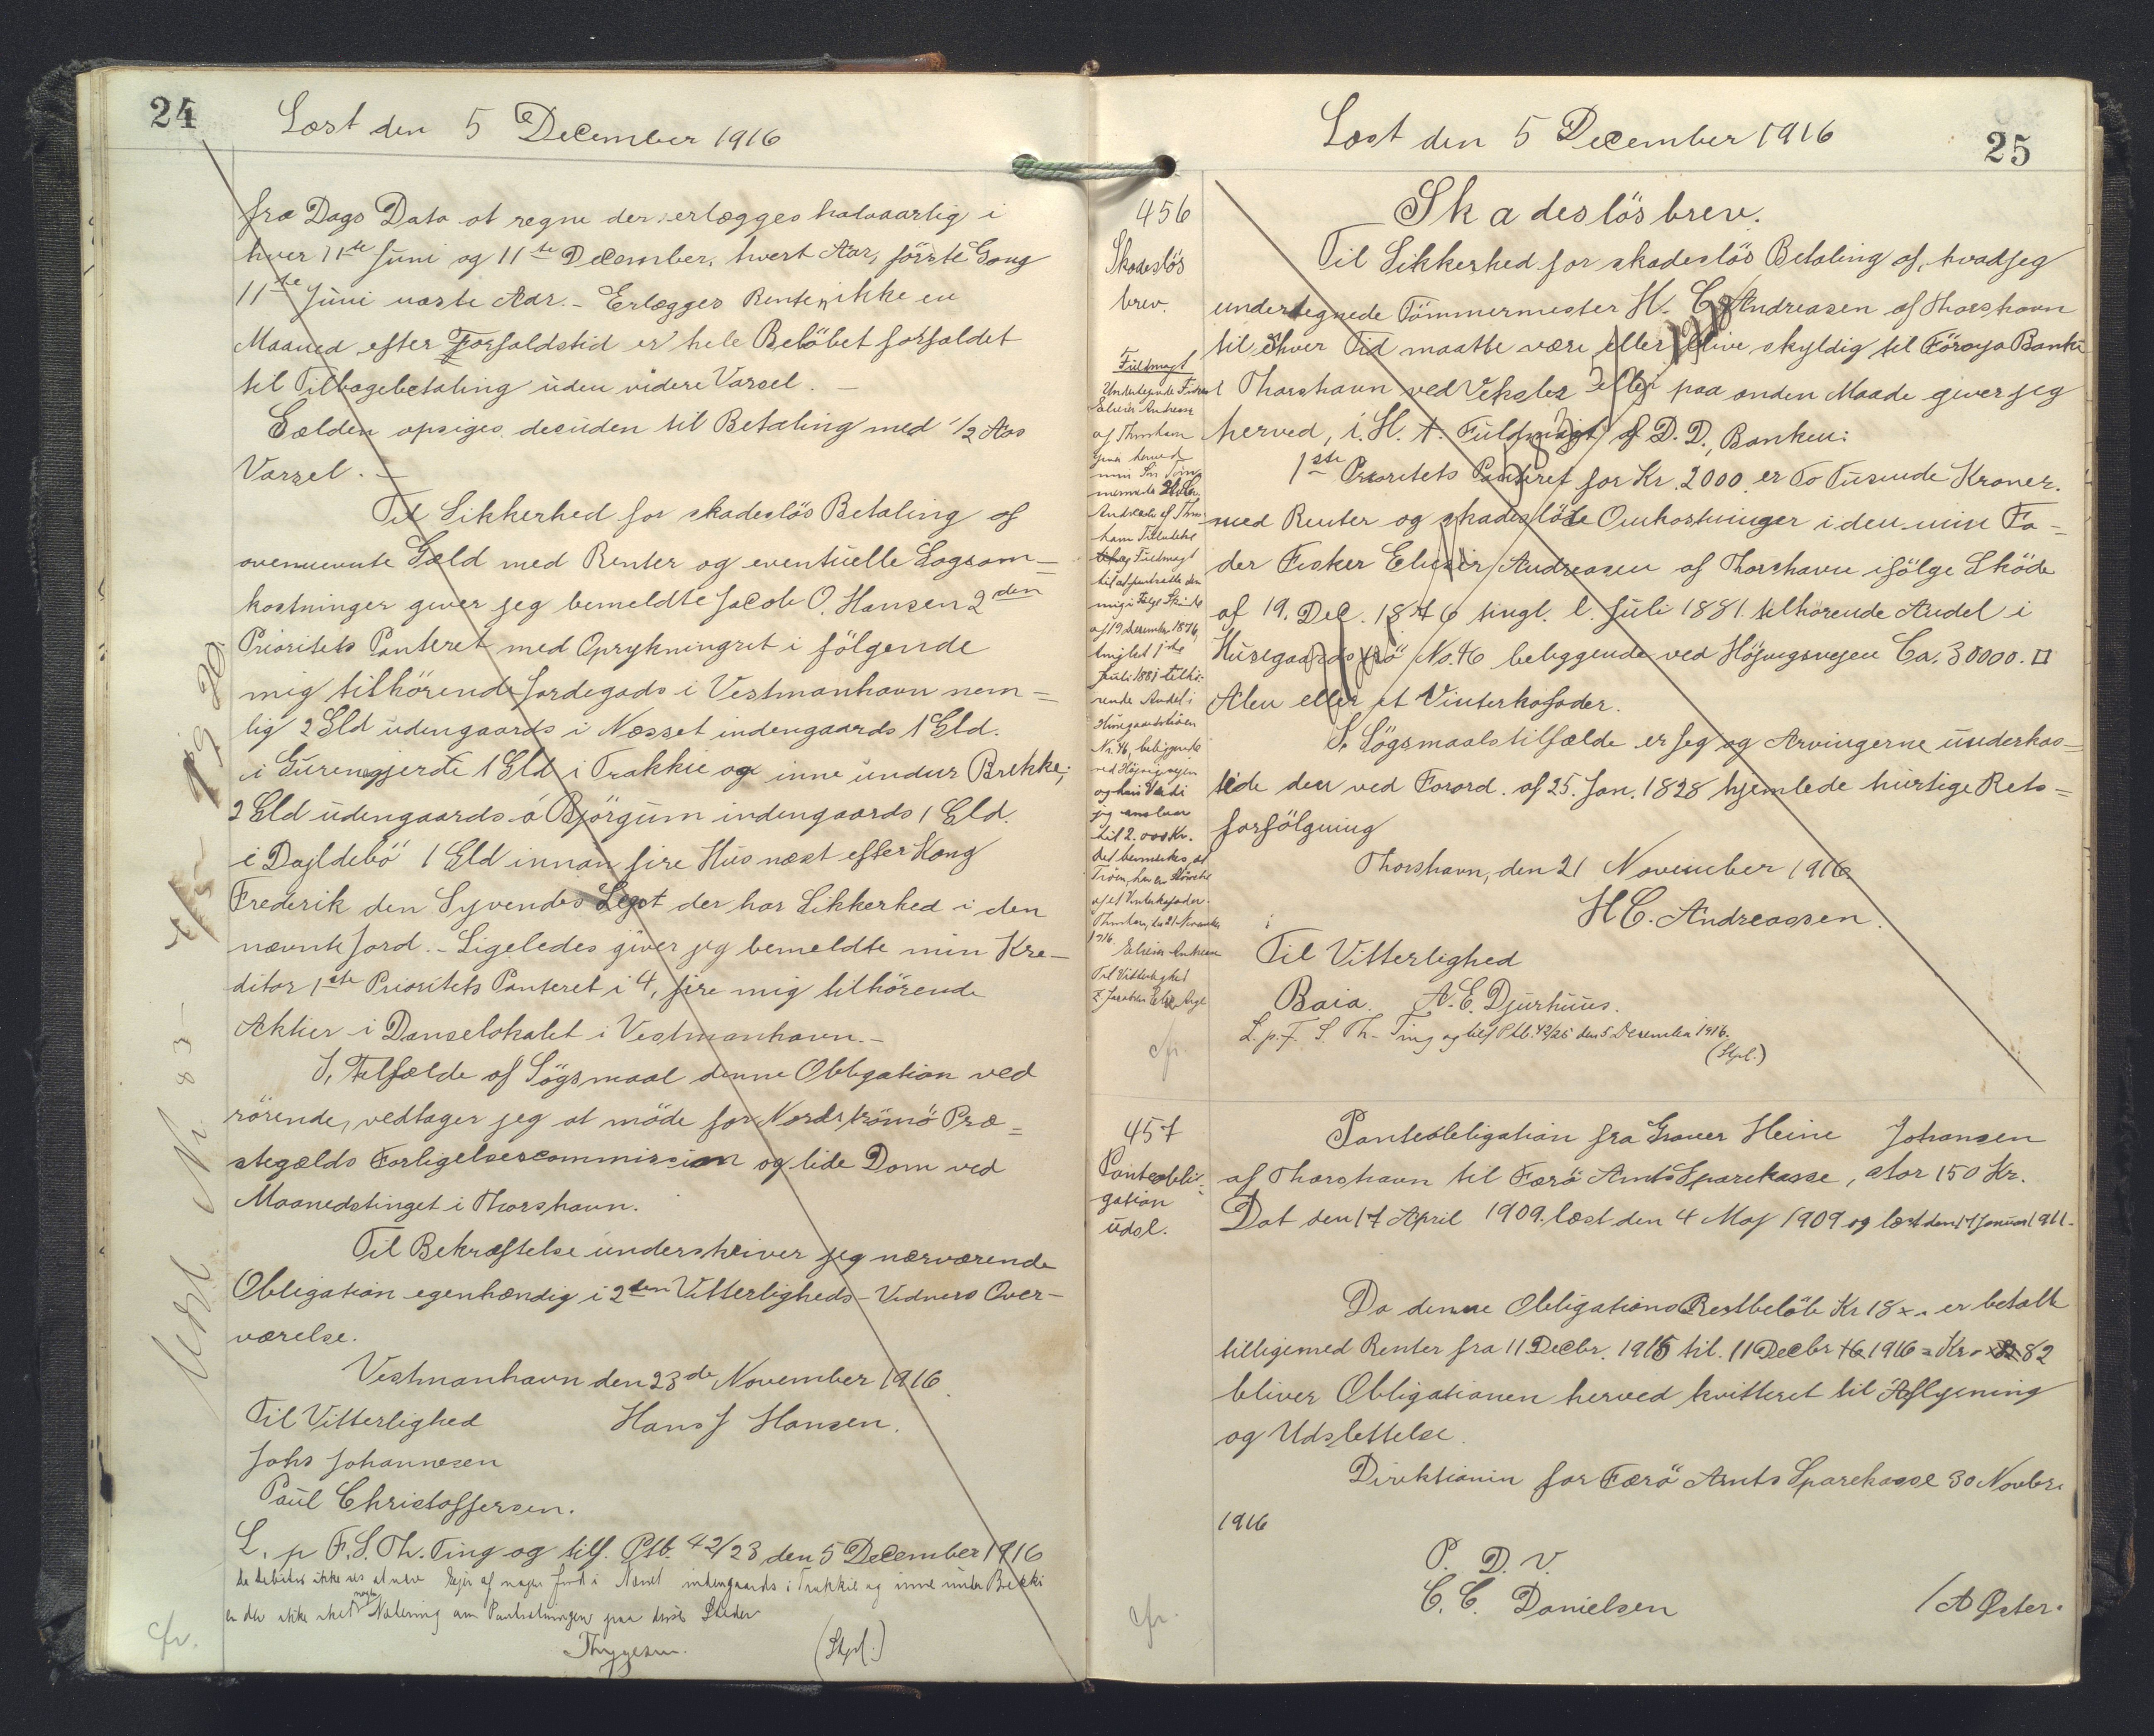 24
Læst den 5 December 1916
fra Dags Dato at regne der erlægges halvaarlig i
hver 11te Juni og 11te December, hvert Aar, förste Gang
11te Juni næste Aar. - Erlægges Renten ikke en
Maaned efter Forfaldstid er hele Belöbet forfaldet
til Tilbagebetaling uden videre Varsel. -
Gælden opsiges desuden til Betaling med 1/2 Aars
Varsel. -
Til Sikkerhed for skadeslös Betaling af
ovennævnte Gæld med Renter og eventuelle Sagsom=
kostninger giver jeg bemeldte Jacob O. Hansen 2den
Prioritets Panteret med Oprykningsret i fölgende
mig tilhörende Jordegods i Vestmanhavn nem=
lig 2 Gld udengaards i Næsset indengaards 1 Gld.
i Gurengjerde 1 Gld i Trakkie og inne undur Brekke;
2 Gld udengaards á Björgum indengaards 1 Gld.
i Dajldebö 1 Gld innan fire Hus næst efter Kong
Frederik den Syvendes Legat der har Sikkerhed i den
nævnte Jord. - Ligeledes giver jeg bemeldte min Kre-
ditor 1ste Prioritets Panteret i 4, fire mig tilhörende
Aktier i Danselokalet i Vestmanhavn. -
I, Tilfælde af Sögsmaal denne Obligation ved
rörende, vedtager jeg at möde for Nordströmö Præ=
stegælds Forligelsescommission og lide Dom ved
Maanedstinget i Thorshavn.
Til Bekræftelse underskriver jeg nærværende
Obligation egenhændig i 2den Vitterligheds-Vidners Over-
værelse.
Vestmanhavn den 23de November 1916.
Til Vitterlighed Hans J Hansen.
Johs Johannesen
Paul Christoffersen.
L. p F. S. Th. Ting og tilf. Ptb. 42/23 den 5 December 1916
Da Debitor ikke ses at være Ejer af nogen Jord i Næsset indengaards i Trakkie og inne undur Brekki
er der ikke sket nogen Notering om Pantsætningen paa disse Steder
Thygesen. (Stpl.)
cfr.
25
Læst den 5 December 1916
456
Skadeslös
brev.
Fuldmagt
Undertegnede Fisker
Elieser Andreasen
af Thorshavn
giver herved
min Sön Töm
mermester H. C.
Andreasen af Thors
havn Tilladelse
og Fuldmagt
til at pantsætte den
mig i Følge Skjöde
af 19 December 1876,
tinglæst 1ste
Juli 1881 tilhö-
rende Andel i
Husegaardströen
No. 46, beliggende
ved Höjvigsvejen
og hvis Værdi
jeg ansl­aar
til 2.000 Kr.
Det bemærkes, at
Tröen, har en Störrelse
af et Vinterkofoder.
Thorshavn, den 21 November
1916.
Elieser Andreasen
Til Vitterlighed
cfr
Skadeslösbrev.
Til Sikkerhed for skadeslös Betaling af, hvad jeg
undertegnede Tömmermester H. C. Andreasen af Thorshavn
til Enhver Tid maatte være eller blive skyldig til Föroya Banki
i Thorshavn ved Veksler eller paa anden Maade giver jeg
herved, i. H. t. Fuldmagt af D. D., Banken:
1ste Prioritets Panteret for Kr. 2000 er To Tusinde Kroner.
med Renter og skadeslöse Omkostninger i den min Fa-
der Fisker Elieser Andreasen af Thorshavn ifölge Sköde
af 19. Dec. 1876 tingl. 1. Juli 1881 tilhörende Andel i
Husegaardströ No. 46 beliggende ved Höjvigsvejen Ca. 30000. □
Alen eller et Vinterkofoder.
I, Sögsmaalstilfælde er jeg og Arvingerne underkas=
tede den ved Forord. af 25. Jan. 1828 hjemlede hurtige Rets=
forfölgning
Thorshavn, den 21 November 1916.
H C. Andreassen.
Til Vitterlighed
Baia. A. E. Djurhuus.
L. p. F. S. Th. Ting og tilf Ptb. 42/25 den 5 December 1916.
(Stpl.)
457
Panteobli-
gation
udsl.
cfr.
Panteobligation fra Graver Heine Johansen
af Thorshavn til Færö Amts Sparekasse, stor 150 Kr.
Dat den 17 April 1909. læst den 4 Maj 1909 og læst den 17 Januar 1911.
Da denne Obligations Restbelöb Kr 18 x.. er betalt
tilligemed Renter fra 11 Decbr. 1915 til. 11 Decbr 1916 = Kr. 82
bliver Obligationen herved kvitteret til Aflysning
og Udslettelse.
Direktionin for Færö Amts Sparekasse 30 Novbr.
1916
P. D. V.
C. C. Danielsen / A Öster.